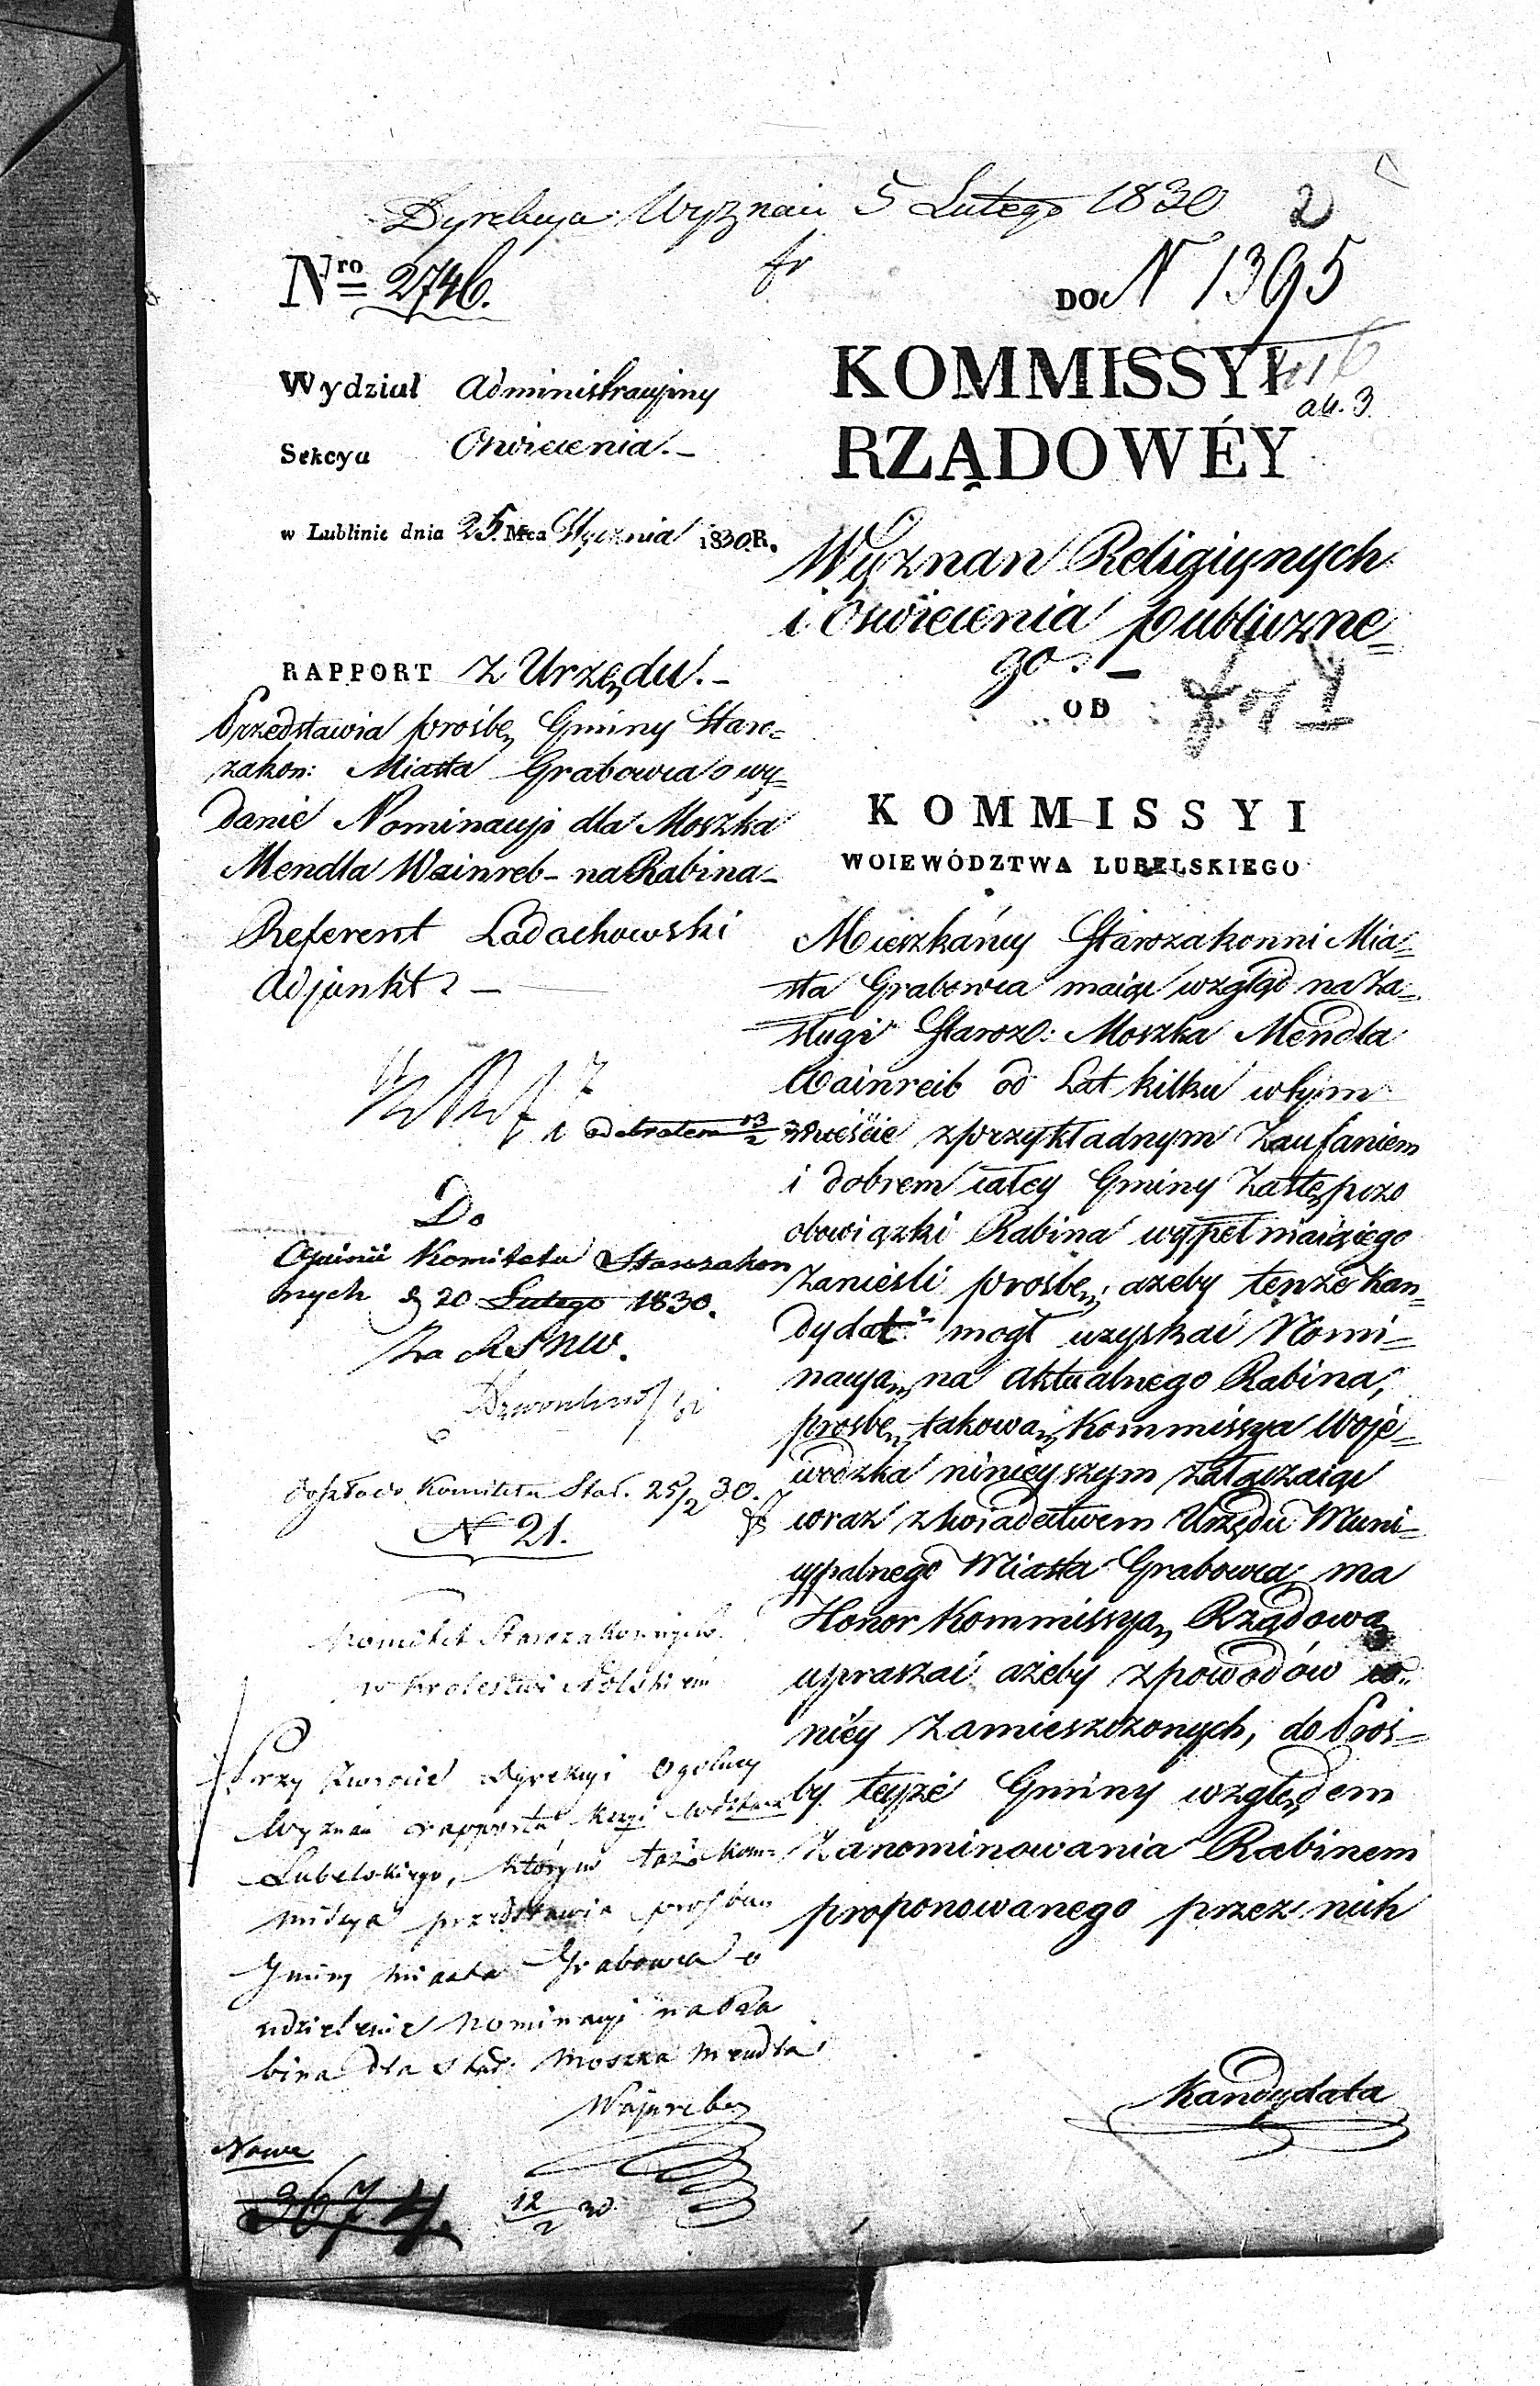 Dyrekcya Wyznań 5 Lutego 1830
2
Nro 2746.
DO N 1395
Wydział Administracyjny
Sekcya Oświecenia.
w Lublinie dnia 25 Mca Stycznia 1830. R.
KOMMISSYI
RZĄDOWÉY
Wyznań Religiynych
i Oświecenia publiczne=
go.
OD
KOMMISSYI
WOIEWÓDZTWA LUBELSKIEGO
RAPPORT z Urzędu.
Przedstawia prośbę Gminy Staro=
zakon: Miasta Grabowca o wy=
danie Nominacyi dla Moszka
Mendla Wainreb - na Rabina
Referent Ladachowski
Adjunkt
odebrałem 13/2
Do
Opinii Komitetu Starozakon
nych d 20 Lutego 1830.
Doszło do Komitetu Star. 25/2 30.
N 21.
Komitet Starozakonnych
w Królestwie Polskiem
Przy zwrocie Dyrekcyi Ogolney
Wyznań rapportu
Lubelskiego, którym taż Kom=
missya przedstawia prośbę
Gminy miasta Grabowca o
udzielenie nominacyi na Ra
bina dla Star. Moszka Mendla
Wajnreba
Nowe
3674.
12/2 30
Mieszkańcy Starozakonni Mia=
sta Grabowca maiąc wzgląd na Za=
sługi Staroz: Moszka Mendla
Wainreib od Lat kilku w tym
mieście z przykładnym Zaufaniem
i dobrem całey Gminy Zastępczo
obowiązki Rabina wypełniaiącego
Zanieśli prośbę, ażeby tenże Kan=
dydat mogł uzyskać Nomi=
nacyą na aktualnego Rabina,
prośbę takową Kommissya Woje=
wódzka ninieyszym załączaiąc
wraz z świadectwem Urzędu Muni=
cypalnego Miasta Grabowca ma
Honor Kommissyą Rządową
upraszać ażeby z powodów w
niéy Zamieszczonych, do Proś=
by teyże Gminy względem
Zanominowania Rabinem
proponowanego przez nich
Kandydata